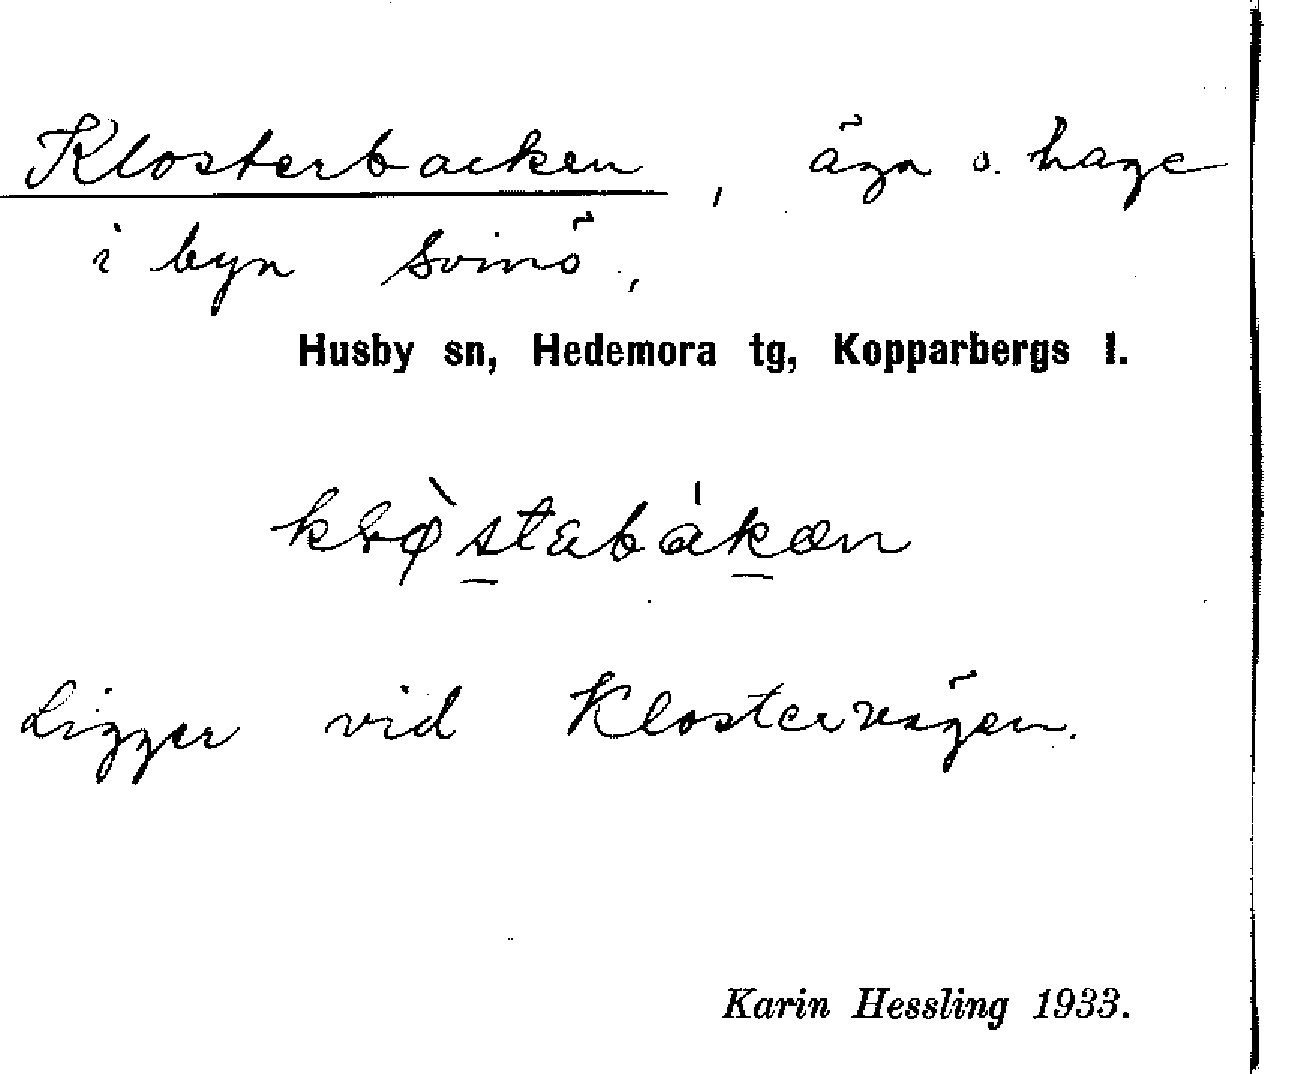 Klosterbacken, äga o. hage
i byn Svinö,
Husby sn, Hedemora tg, Kopparbergs l.
Ligger vid Klostervägen.
Karin Hessling 1933.